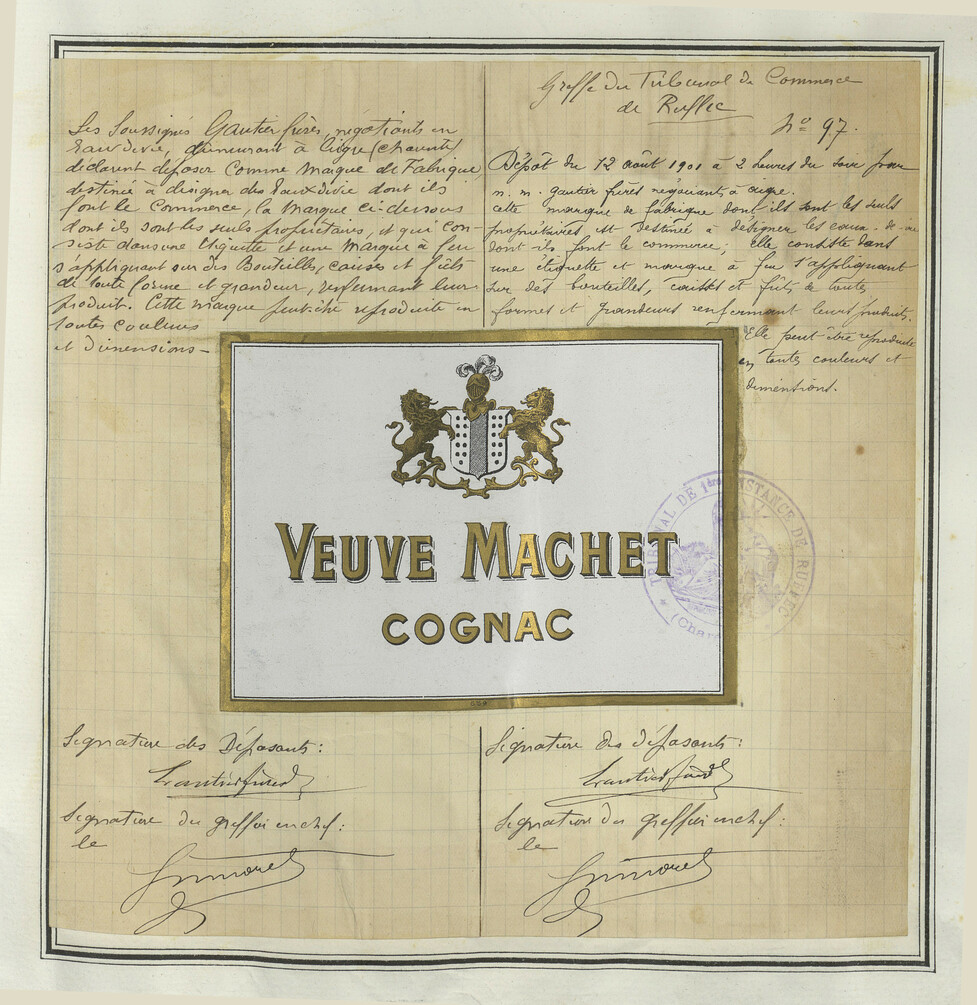 Les Soussignés Gautier frères, négotiants en
Eaux devie, demeurant à Aigre (charente)
déclarent déposer Comme Marque de Fabrique
destinée à designer des Eaux devie dont ils
font le Commerce, la Marque ci-dessous
dont ils sont les seuls propriétaires, et qui con-
siste dans une Etiquette et une Marque à feu
s'appliquant sur des Bouteilles, caisses et fûts
de toute forme et grandeur, renfermant leur
produit. Cette marque peut être reproduite en
toutes couleurs
et dimensions -
Greffe du Tribunal de Commerce
de Ruffec
No 97.
Dépôt du 12 août 1901 à 2 heures du soir pour
m. m. gautier frères négociants à aigre.
cette marque de fabrique dont ils sont les seuls
propriétaires, est destinée à désigner les eaux-de-vie
dont ils font le commerce; elle consiste dans
une étiquette et marque à feu s'appliquant
sur des bouteilles, caisses et fûts de toutes
formes et grandeurs renfermant leurs produits.
Elle peut être reproduite
en toutes couleurs et
dimentions.
VEUVE MACHET
COGNAC
TRIBUNAL DE 1ère INSTANCE DE RUFFEC
(Char
Signature des Déposants:
Gautier frères
Signature du greffier en chef:
le
Signature des déposants:
Gautier frères
Signature du greffier en chef:
le